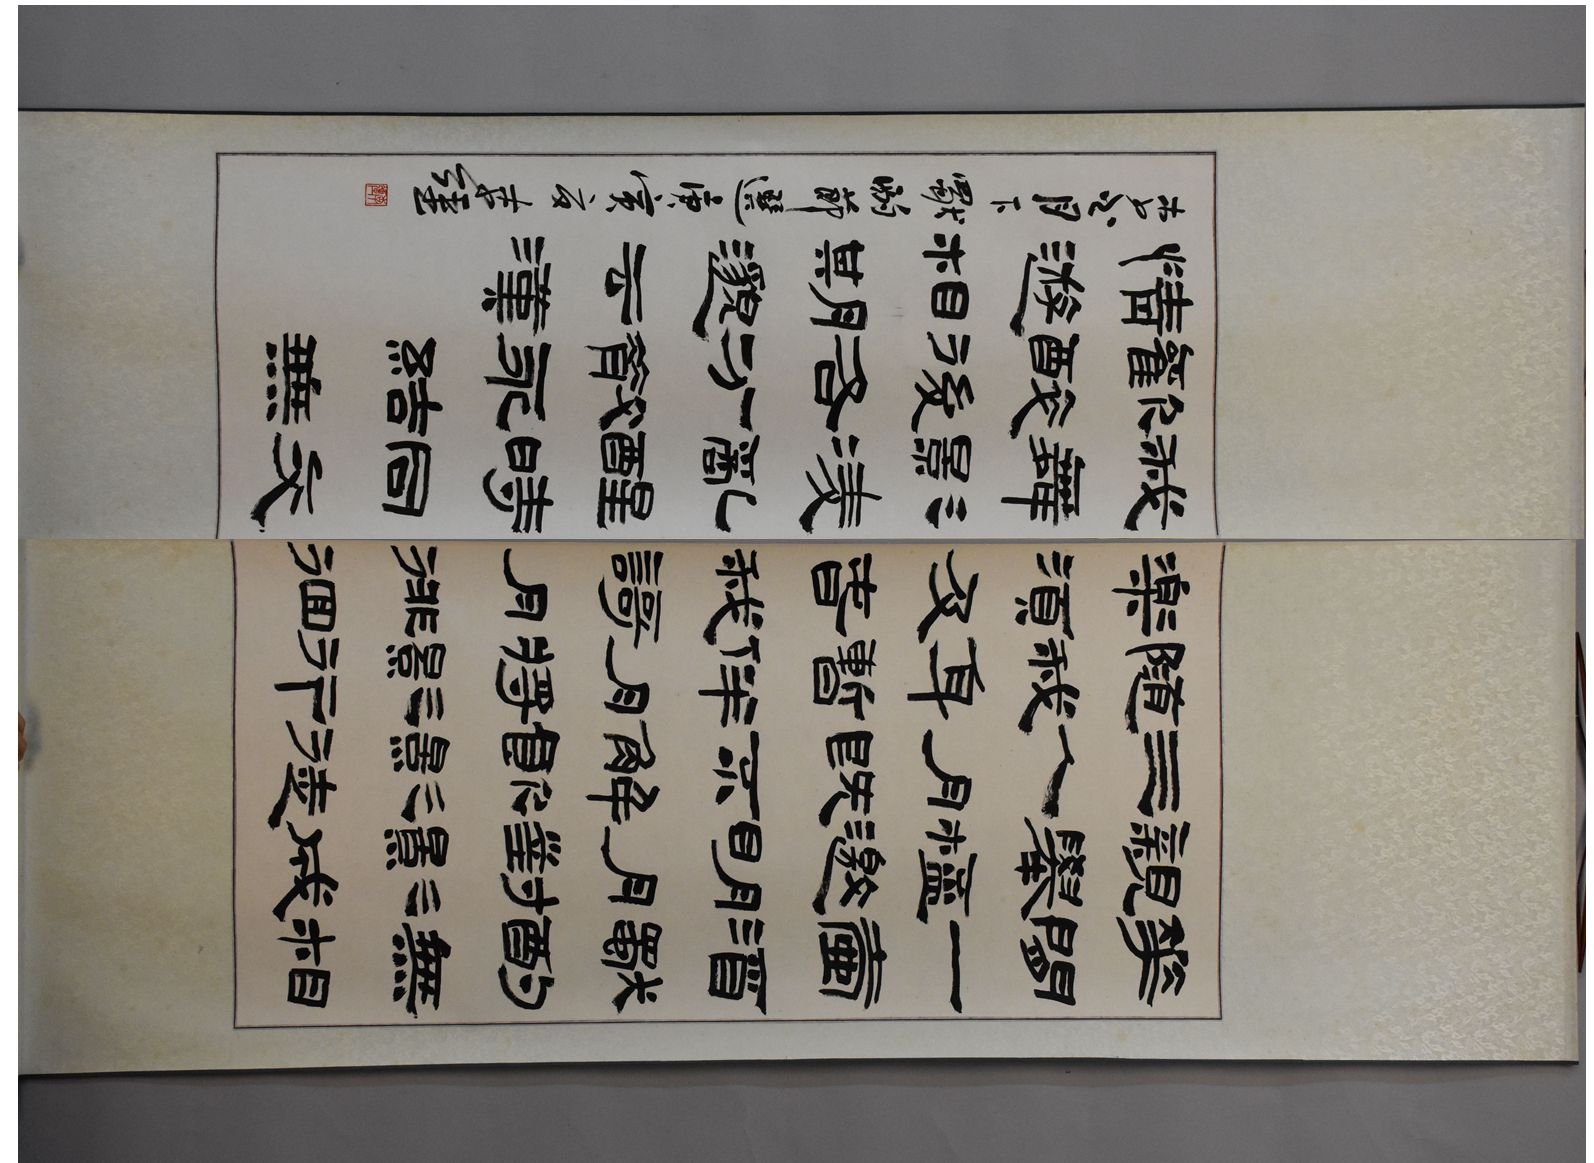 華間一壺酒獨酌無相
親舉杯邀明月對影成
三人月既不解飲影徒
隨我身暫伴月將影行
樂須及春我歌月徘徊
我舞影淩亂醒時同交
歡醉後各分散永結無
情遊相期邈雲漢
李白月下獨酌詩 庚寅